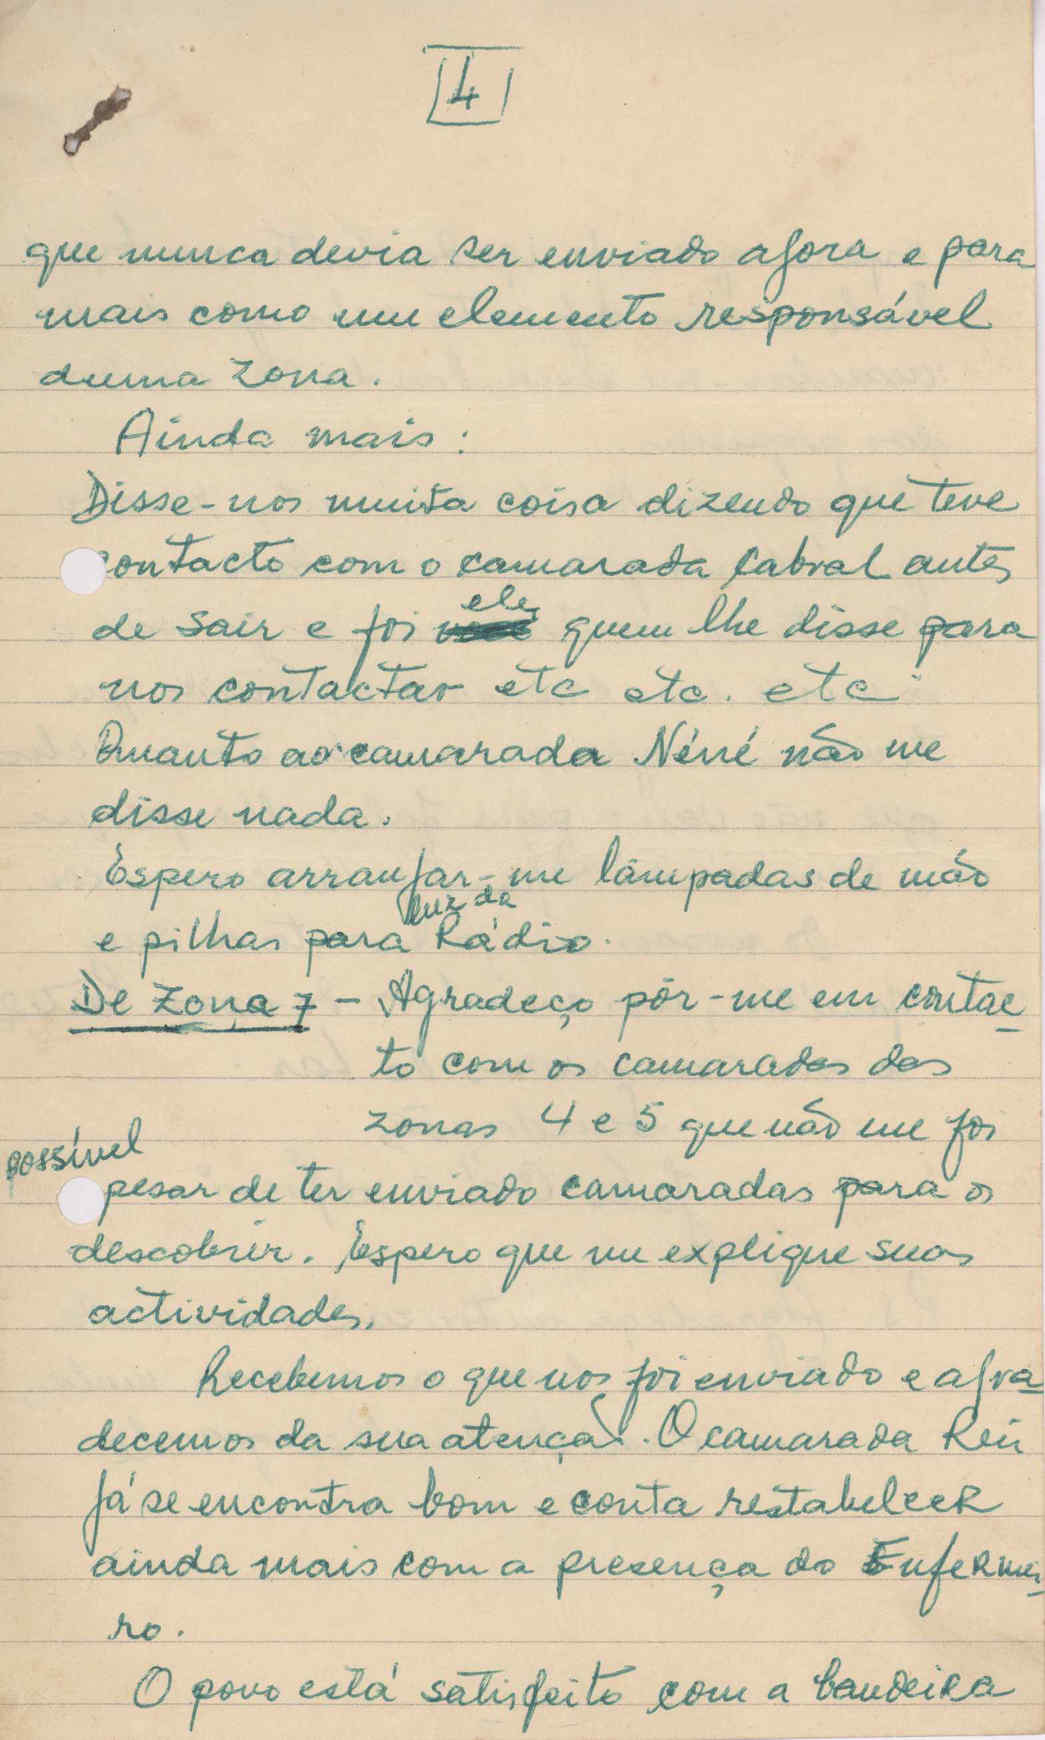 4
que nunca devia ser enviado agora e para
mais como um elemento responsável
duma zona.
Ainda mais :
Disse-nos muita coisa dizendo que teve
contacto com o camarada Cabral antes
de sair e foi ele quem lhe disse para
nos contactar etc etc. etc.
Quanto ao camarada Néné não me
disse nada.
Espero arranjar-me lâmpadas de mão
e pilhas para luz da Rádio.
De Zona 7 - Agradeço pôr-me em contac-
to com os camaradas das
zonas 4 e 5 que não me foi
possível
pesar de ter enviado camaradas para os
descobrir. Espero que me explique suas
actividades.
Recebemos o que nos foi enviado e agra-
decemos da sua atenção. O camarada Rui
já se encontra bom e conta restabelecer
ainda mais com a presença do Enfermei-
ro.
O povo está satisfeito com a bandeira